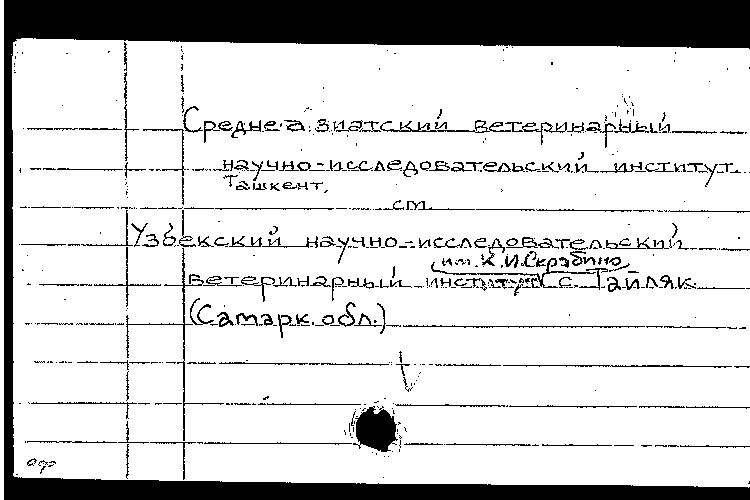 Средне-азиатский ветеринарный
научно-исследовательский институт.
Ташкент,
см.
Узбекский научно-исследовательский
им. К.И. Скрябина
ветеринарный институт с. Тайляк
(Самарк. обл.)